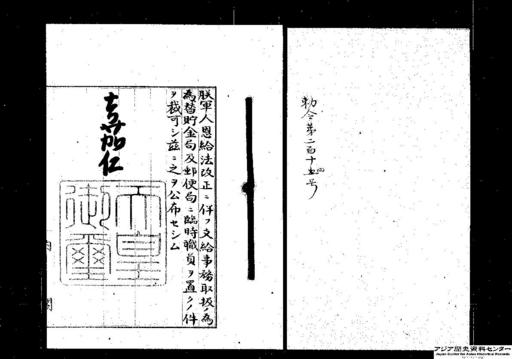 勅令第二百十五号
朕軍人恩給法改正ニ伴フ支給事務取扱ノ為
為替貯金局及郵便局ニ臨時職員ヲ置クノ件
ヲ裁可シ茲ニ之ヲ公布セシム
嘉仁
天皇
御璽
アジア歴史資料センター
Japan Center for Asian Historical Records